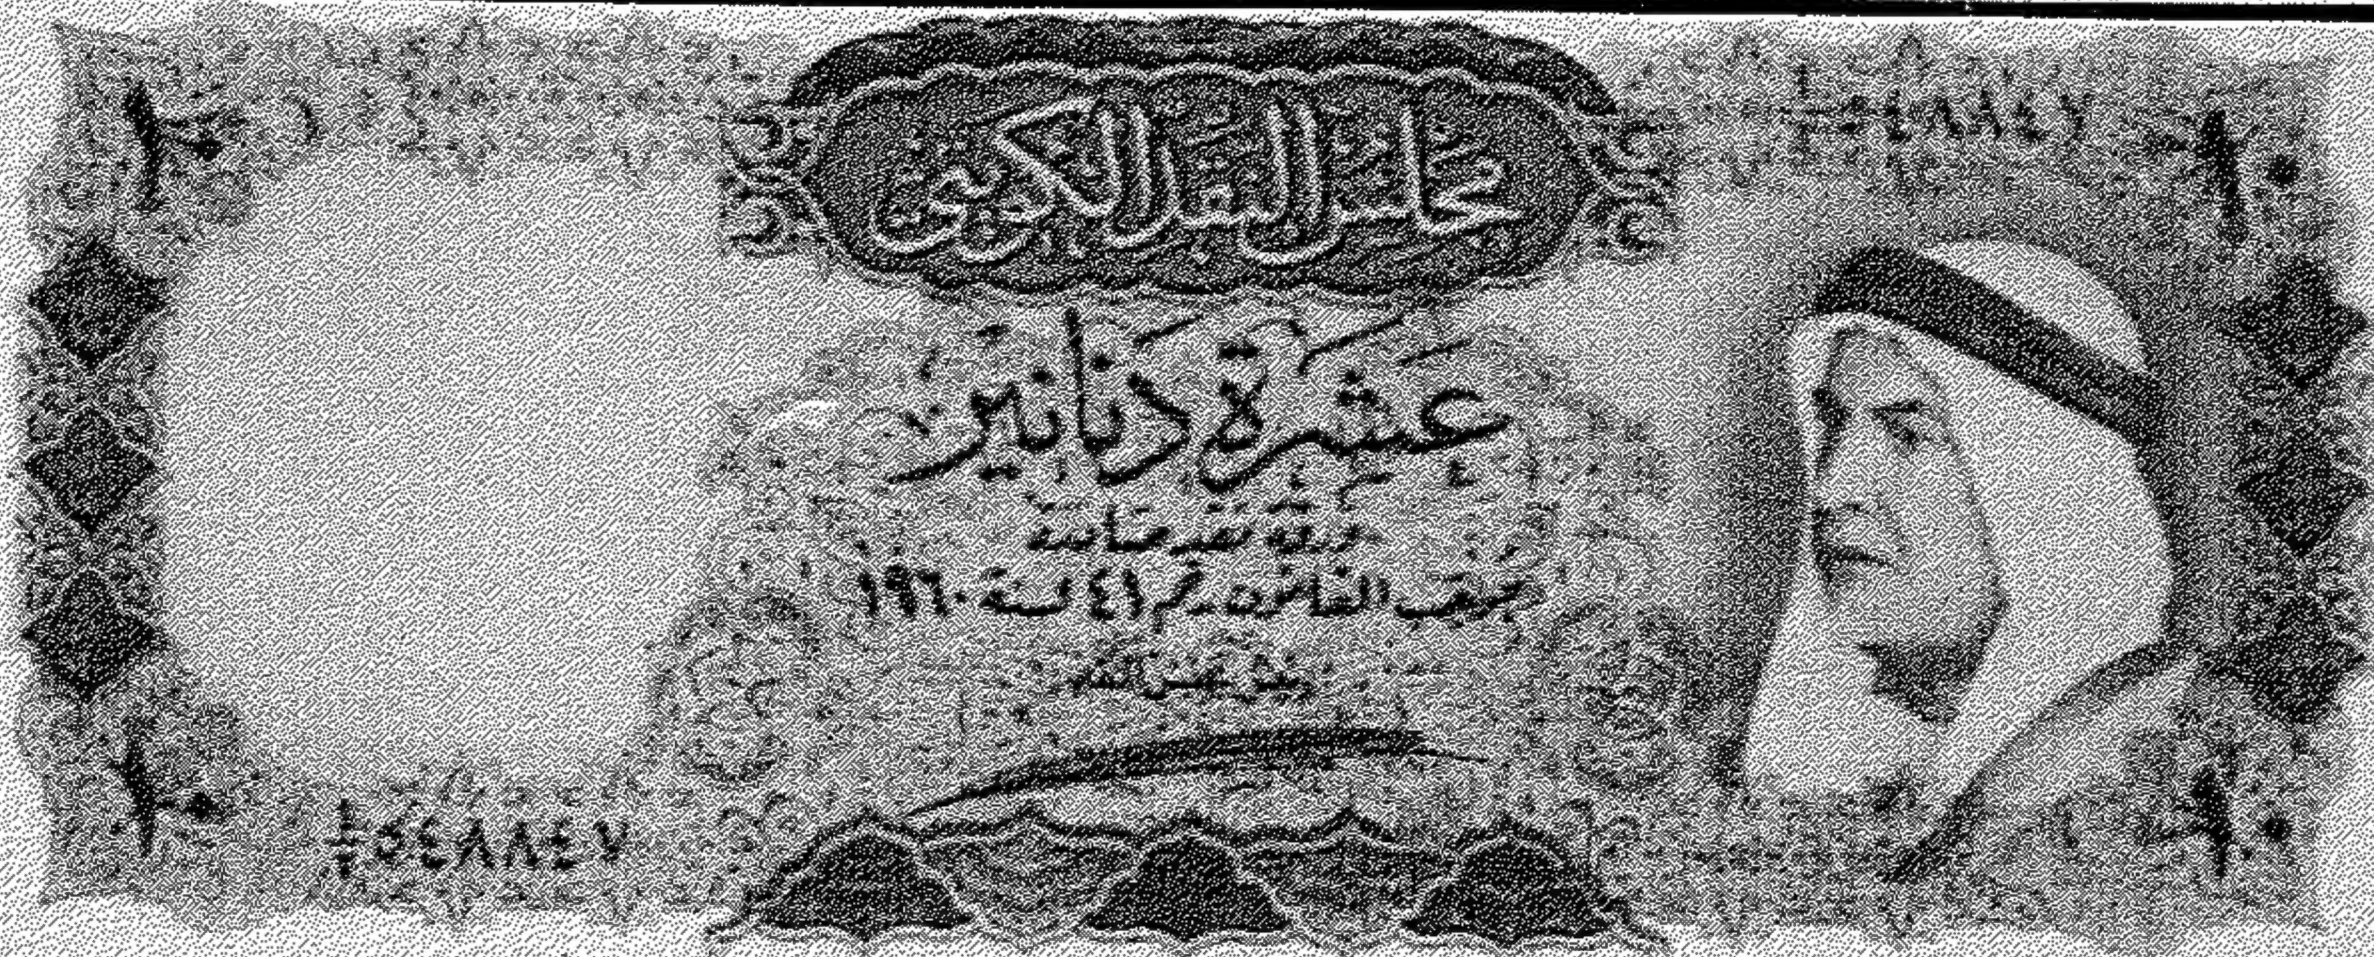 ١٠
١/أ ٥٤٨٨٤٧
١٠
مجلس النقد الكويتى
عشرة دنانير
ورقة نقد صادرة
بموجب القانون رقم ٤١ لسنة ١٩٦٠
رئيس مجلس النقد
١٠
٥٤٨٨٤٧
١٠